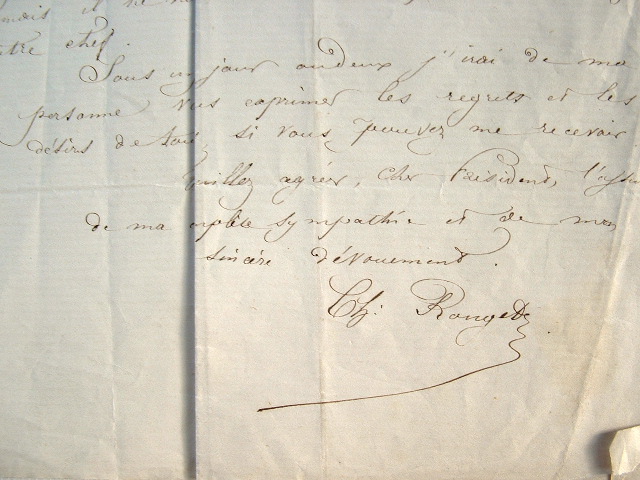 mais il ne
tre chef.
Sous un jour ou deux j'irai de ma
personne vous exprimer les regrets et les
désirs de tous, si vous pouvez me recevoir
Veuillez agréer, cher Président, l'assu
de ma complète sympathie et de mon
sincère dévouement.
Ch. Rouget